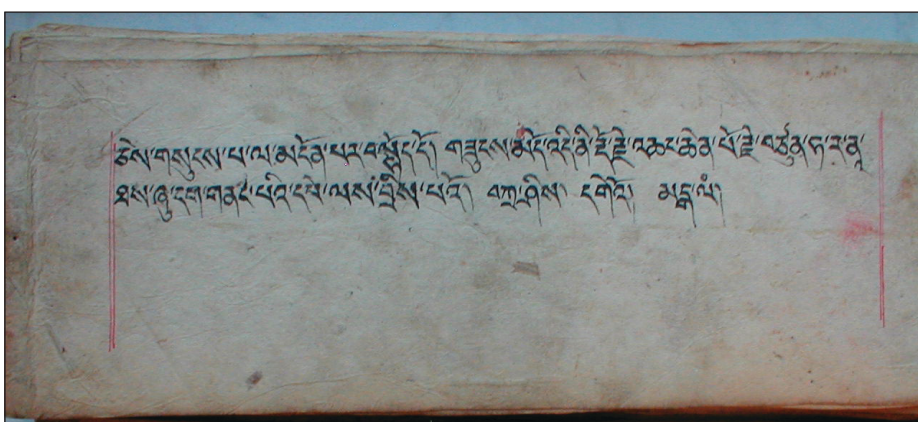 ཅེས་གསུངས་པ་ལ་མངོན་པར་བསྟོད་དོ། གཟུངས་མདོ་འདི་ནི་རྡོ་རྗེ་འཆང་ཆེན་པོ་རྗེ་བཙུན་ཧ་ར་ན
ཐས་ཞུ་དག་གནང་པའི་དཔེ་ལས་བྲིས་པའོ། བཀྲ་ཤིས། དགེའོ། མངྒ་ལཾ།